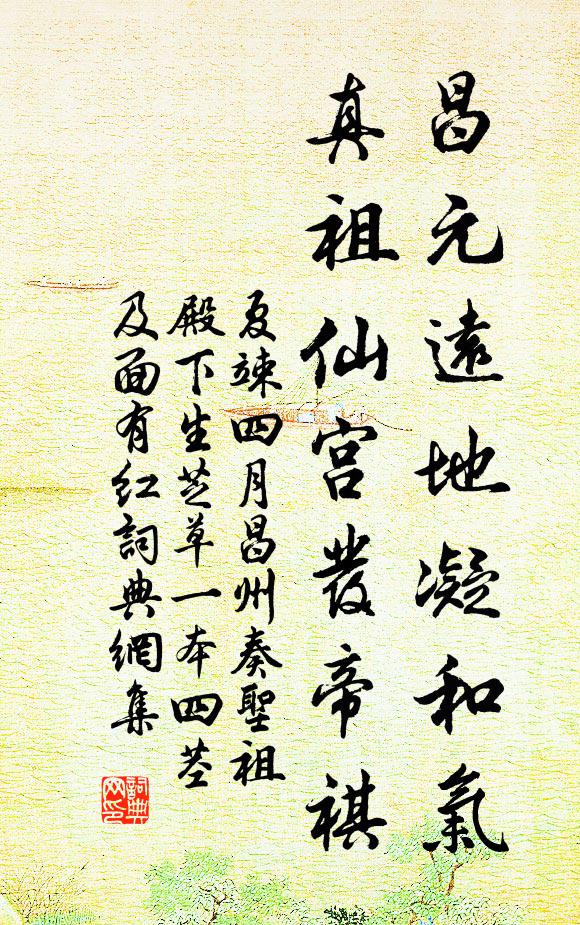 昌元遠地凝和氣
真祖仙宮發帝祺
夏竦四月昌州奏聖祖
殿下生芝草一本四莖
及面有红詞典網集
詞典
网印